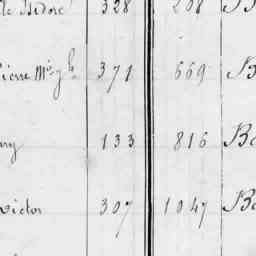 de Isidore 328 208 B
Pierre 371 669 B
ny 133 816 Bo
victor 307 1047 Bo